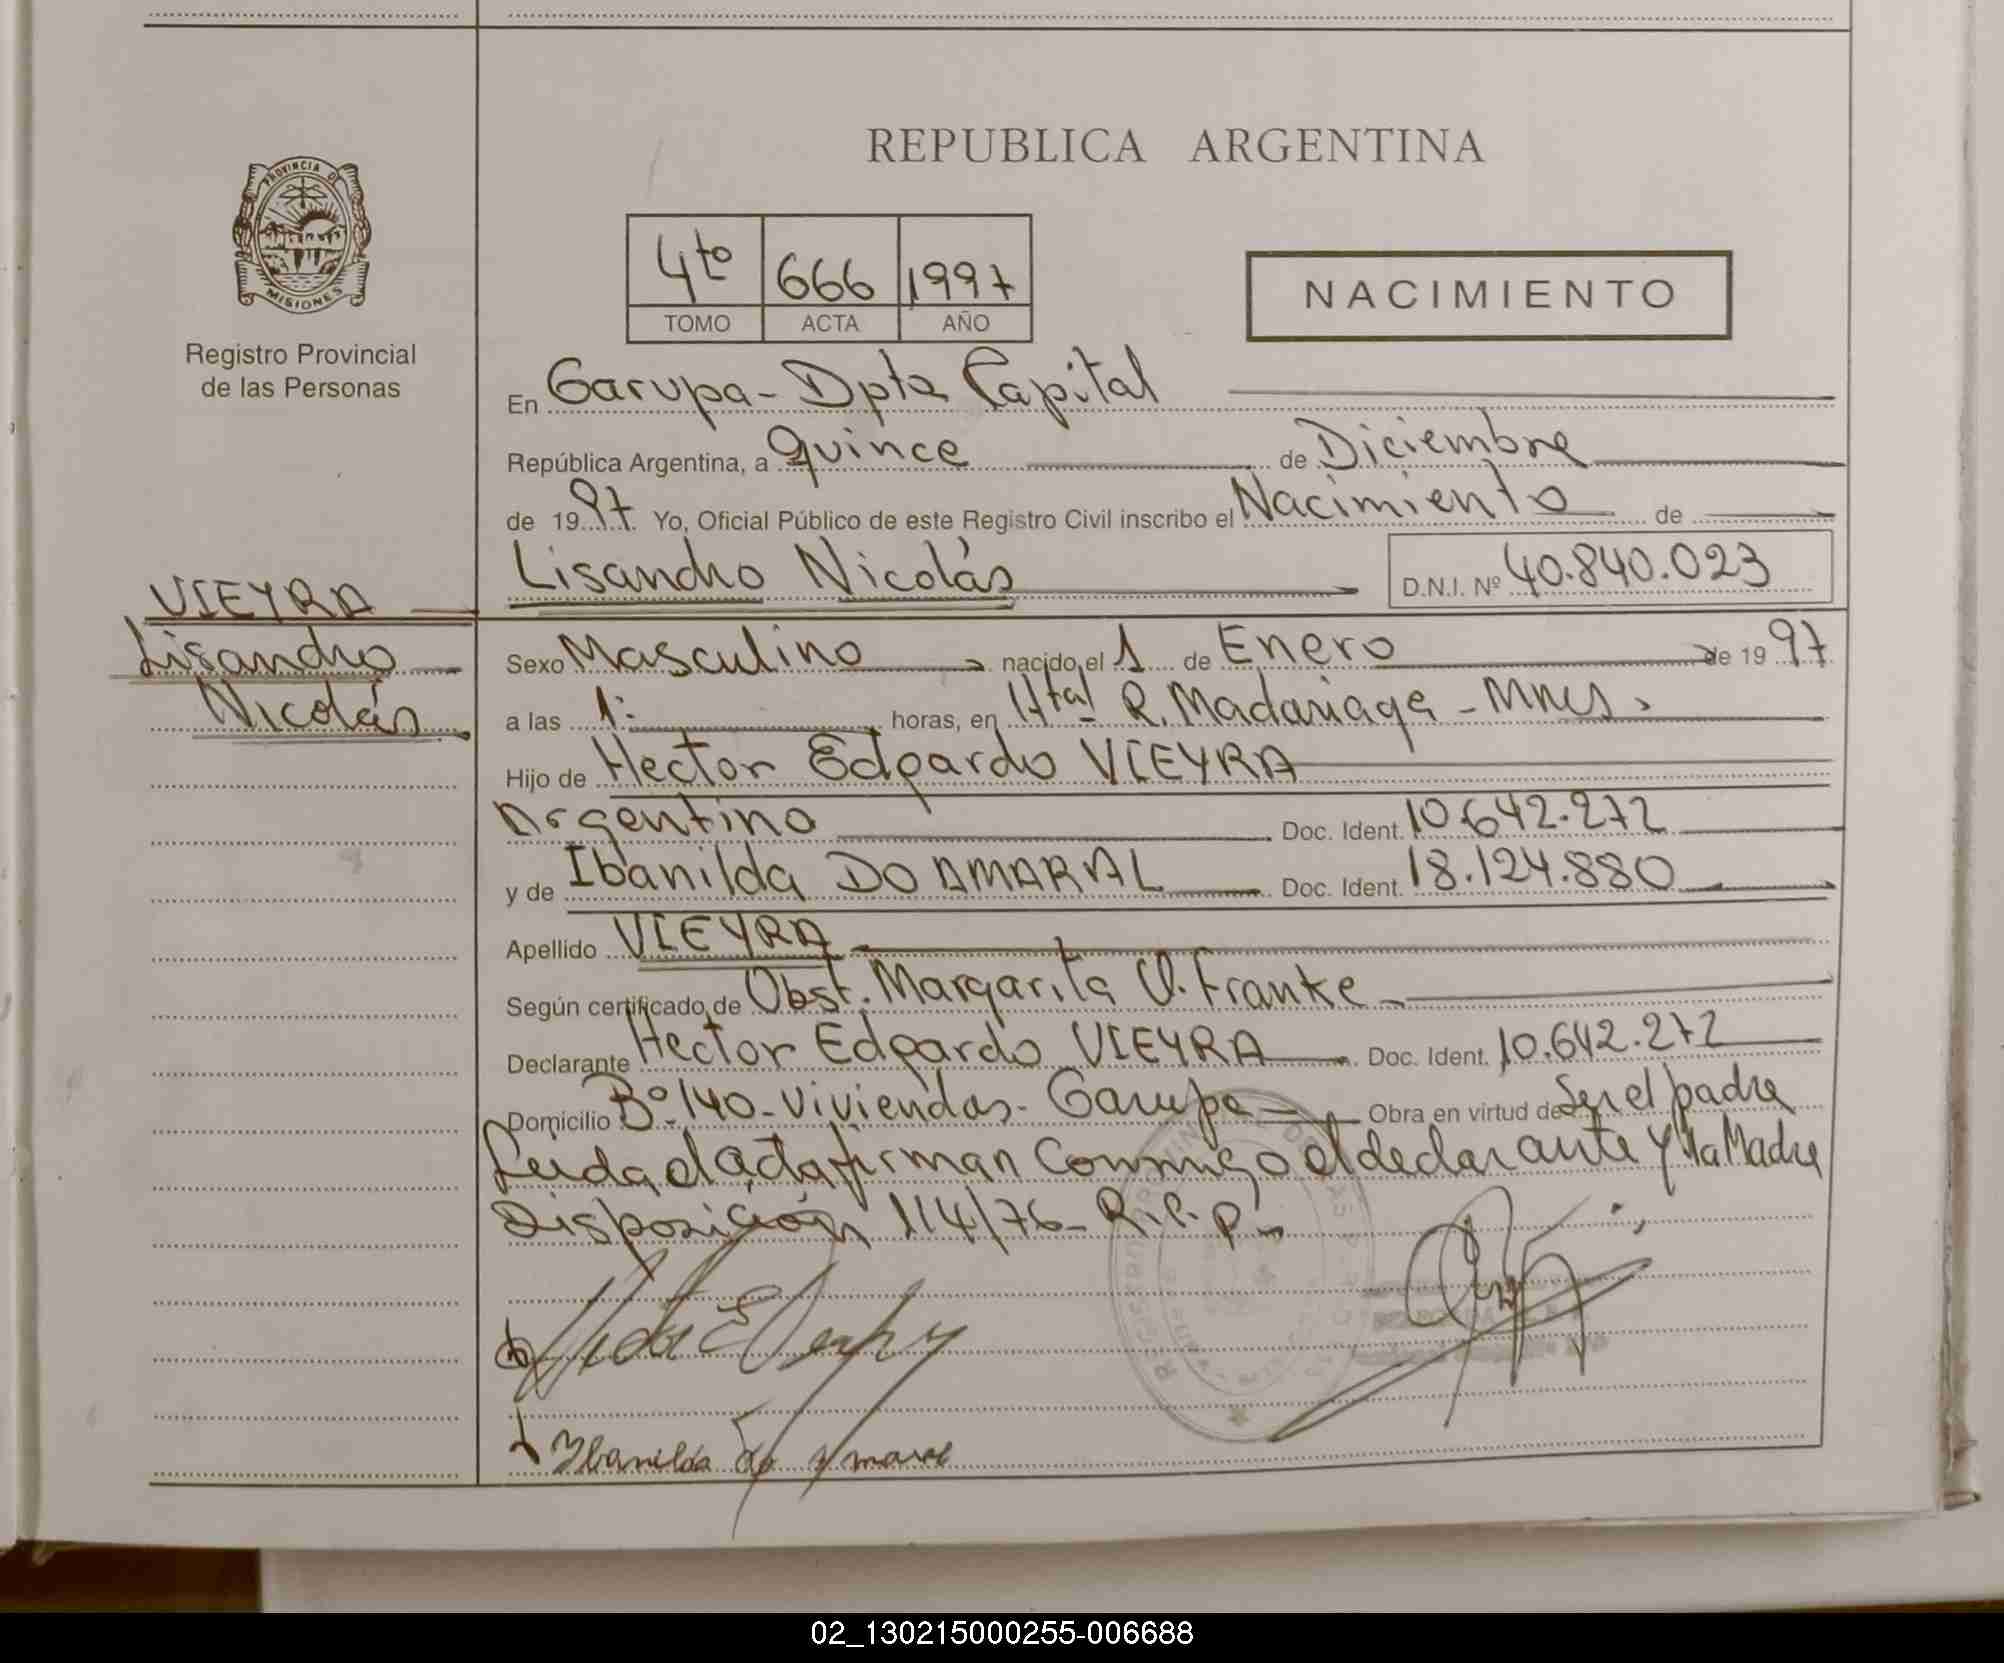 REPUBLICA ARGENTINA
PROVINCIA D
MISIONES
Registro Provincial
de las Personas
4to 666 1997
TOMO ACTA AÑO
NACIMIENTO
En Garupa - Dpto Capital
República Argentina, a Quince de Diciembre
de 1997. Yo, Oficial Público de este Registro Civil inscribo el Nacimiento de
Lisandro Nicolás D.N.I. Nº 40.840.023
VIEYRA
Lisandro
Nicolás
Sexo Masculino nacido el 1 de Enero de 1997
a las 1: horas, en Htal R. Madariaga - Mnes.
Hijo de Hector Edgardo VIEYRA
Argentino Doc. Ident. 10.642.272
y de Ibanilda DO AMARAL Doc. Ident. 18.124.880
Apellido VIEYRA
Según certificado de Obst. Margarita V. Franke
Declarante Hector Edgardo VIEYRA Doc. Ident. 10.642.272
Domicilio Bº 140 - Viviendas - Garupa Obra en virtud de Ser el padre
Leida el acta firman Conmigo el declarante y la Madre
Disposición 114/76 - R.P.P.
Ibanilda do Amaral
02_130215000255-006688